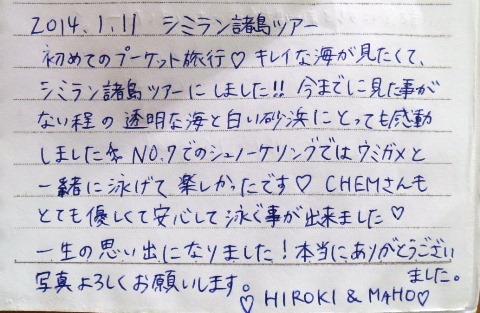 2014.1.11 シミラン諸島ツアー
初めてのプーケット旅行♡ キレイな海が見たくて、
シミラン諸島ツアーにしました!! 今までに見た事が
ない程の透明な海と白い砂浜にとっても感動
しました NO.7でのシュノーケリングではウミガメと
一緒に泳げて楽しかったです♡ CHEMさんも
とても優しくて安心して泳ぐ事が出来ました♡
一生の思い出になりました!本当にありがとうござい
ました。
写真よろしくお願いします。
♡ HIROKI & MAHO♡